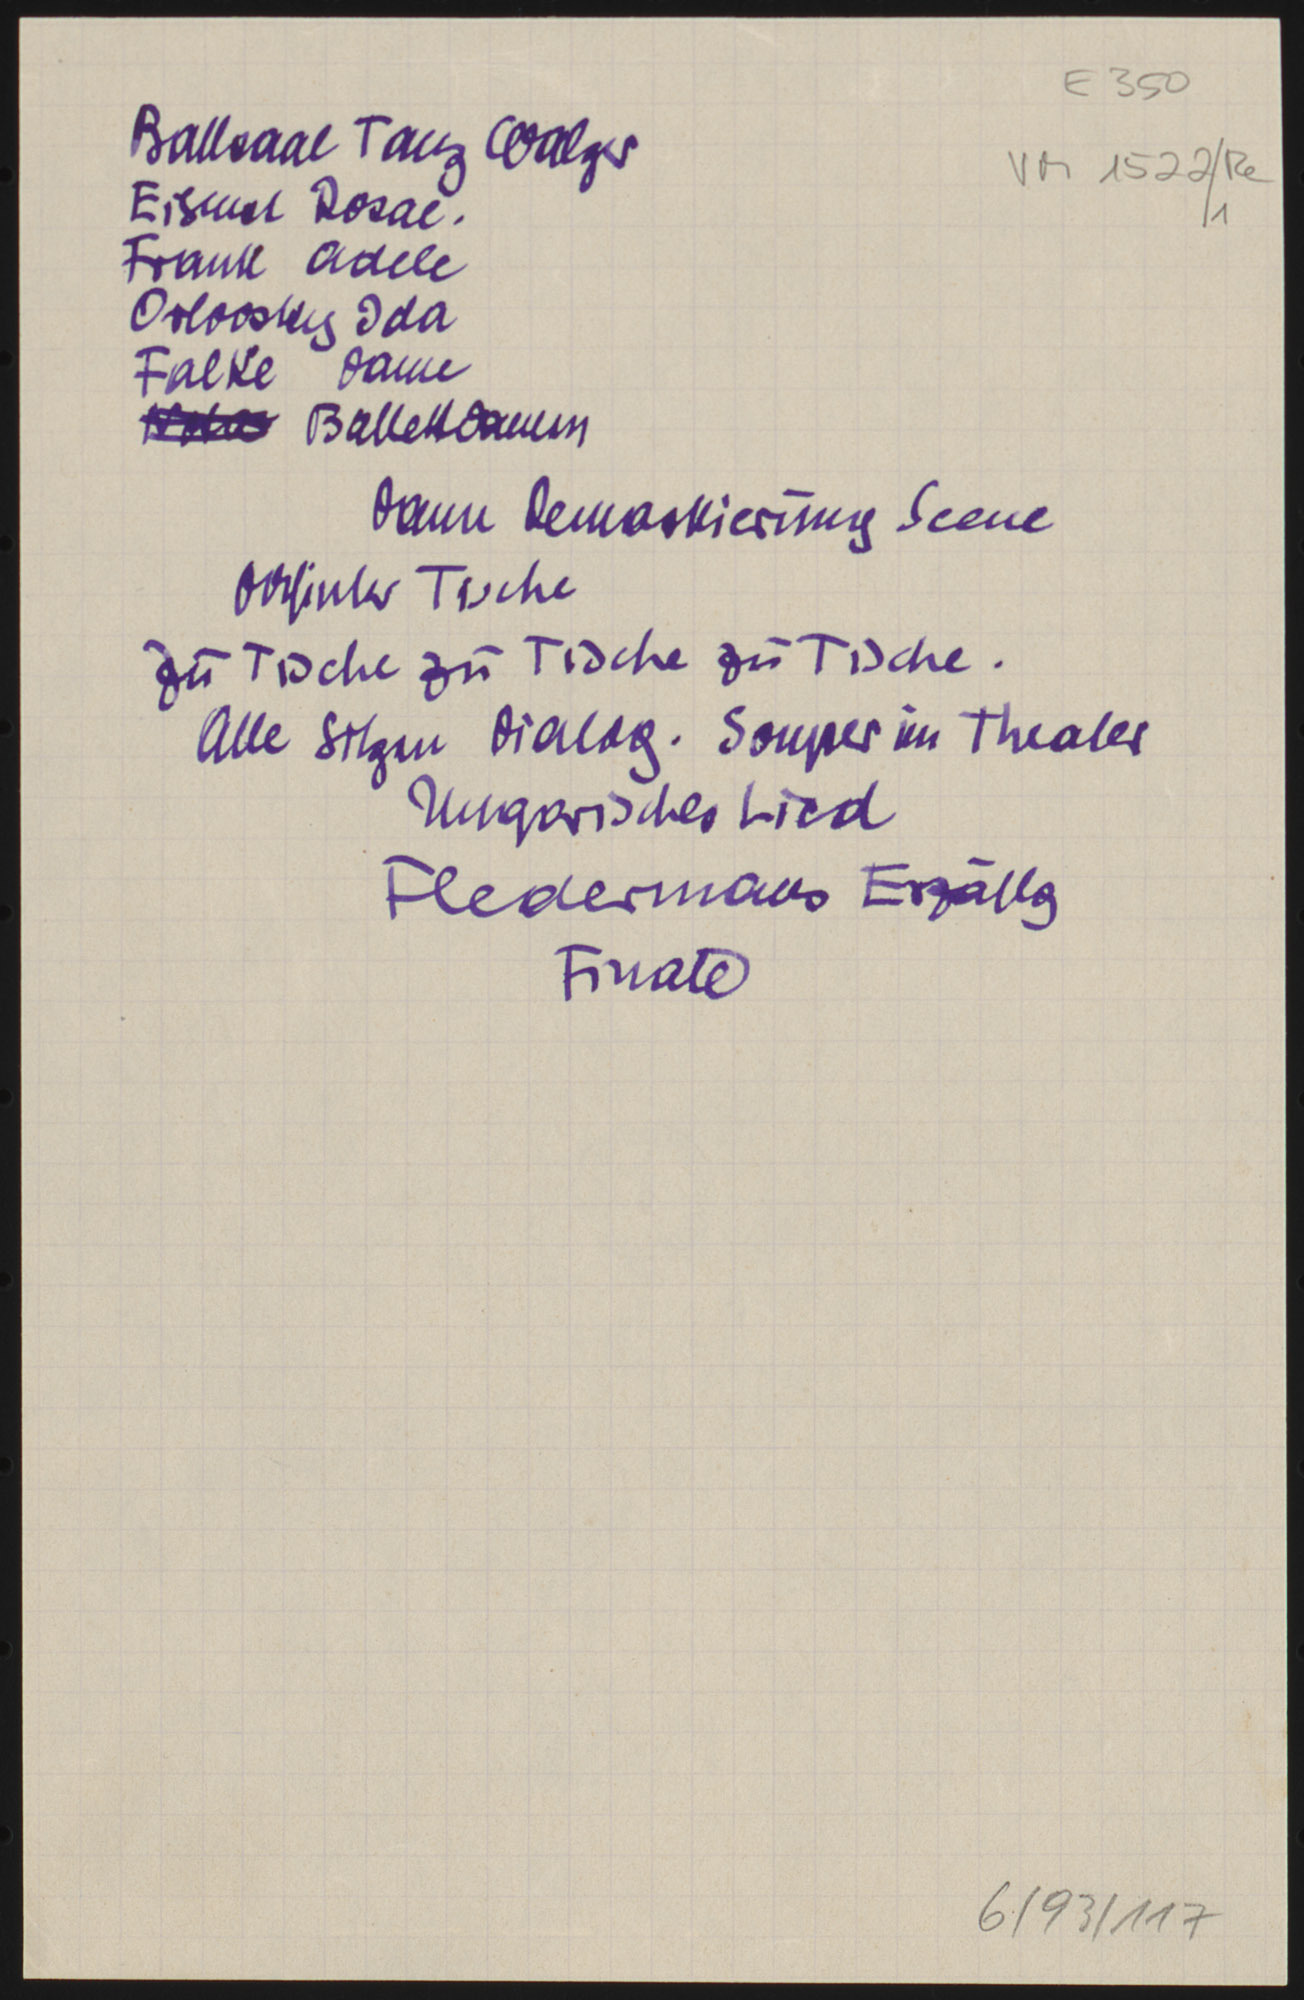 E 350
VM 1522/Re
/1
Ballsaal Tanz Walzer
Eisenst Rosal.
Frank Adele
Orlovsky Ida
Falke Dame
Ballettdamen
Dann Demaskierung Scene
Tische
zu Tische zu Tische zu Tische.
Alle Sitzen Dialog. Souper im Theater
Ungarisches Lied
Fledermaus Erzählg
Finale
6/93/117